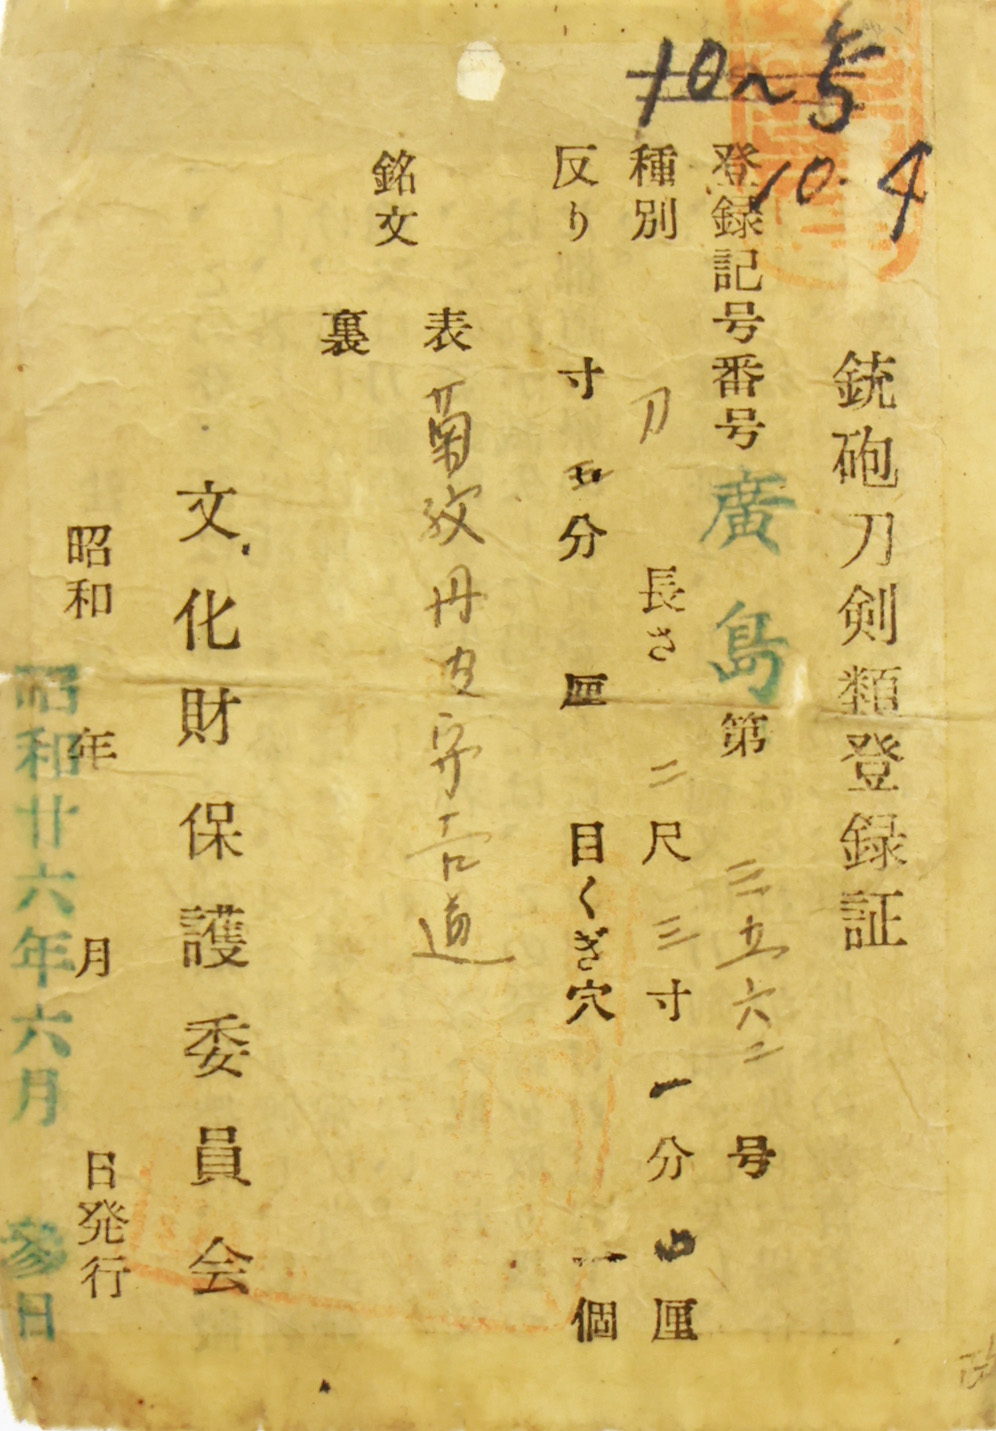 10へ号
10.4
銃砲刀剣類登録証
登録記号番号 廣島 第 三五六二 号
種別 刀 長さ 二尺三寸一分 厘
反り 寸五分 厘 目くぎ穴 一個
銘文
表 菊紋丹波守吉道
裏
文化財保護委員会
昭和 年 月 日発行
昭和廿六年六月 参日